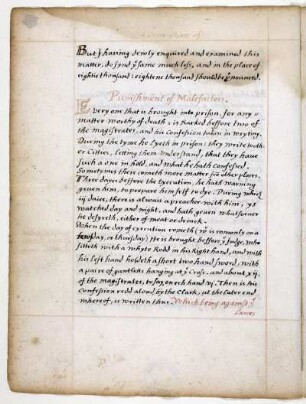 But I having dewly enquired and examined this
matter, do fynd yͤ same much less, and in the place of
eightie thousand: eightene thousand should be
Punishment of Malefactors.
Every one that is brought into prison, for any
matter worthy of death: is Racked beffore two of
the magistrates, and his Confession taken in wryting.
During the tyme he lyeth in prison: they write
Citties, letting them understand, that they have
such a one in hold, and what he hath Confessed.
Sometimes there cometh more matter from other places.
Three dayes beffore the Execution, he hath warning
given him, to prepare him self to dye. During which
iij daies, there is alwaies a preacher with him, &
watched day and night, and hath given whatsoever
he desyreth, either of meat or drinck.
When the day of execution cometh (wͨ is comonly on a
tewsday, or thursday) He is brought beffore yͤ Judge, who
sitteth with a whyte Rodd in his Right hand, and with
his left hand holdeth a short two hand sword, with
a paire of gantlets hanging at yͤ Cross. and about xij
of the magistrates, to say, on each hand vj. Then is his
Confession redd aloud by the Clark, at the later end
whereof, is written thus. Which being against yͤ
Lawes